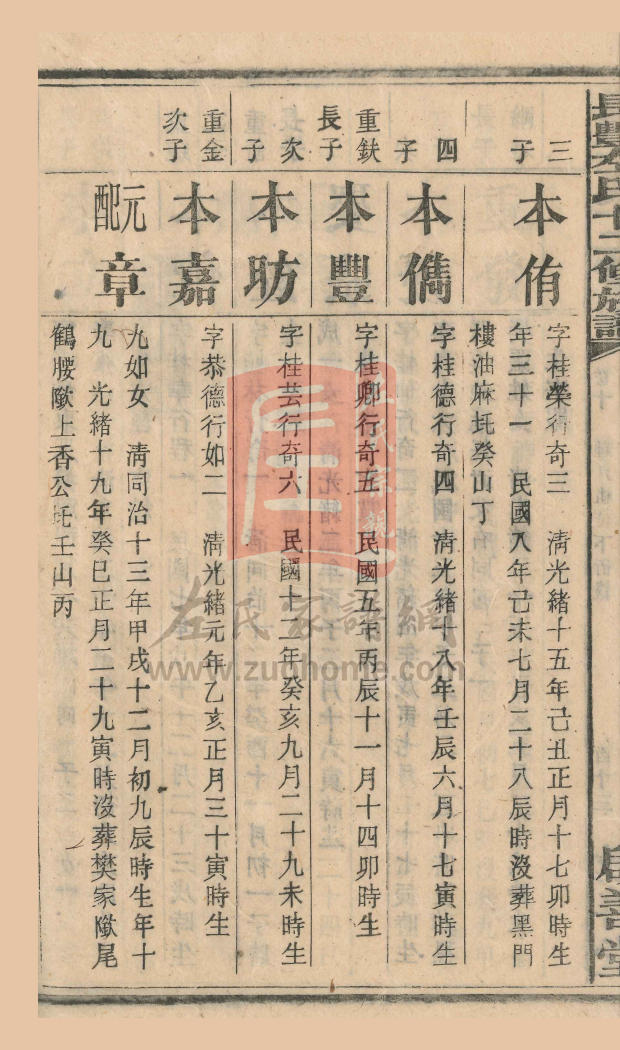 三子
本侑
字桂榮行奇三 清光緒十五年己丑正月十七卯時生
年三十一 民國八年己未七月二十八辰時沒葬黑門
樓油麻坉癸山丁
四子
本儁
字桂德行奇四 清光緒十八年壬辰六月十七寅時生
重鈇長子
本豐
字桂卿行奇五 民國五年丙辰十一月十四卯時生
次子
本昉
字桂芸行奇六 民國十二年癸亥九月二十九未時生
重金次子
本嘉
字恭德行如二 清光緒元年乙亥正月三十寅時生
元配章
九如女 清同治十三年甲戌十二月初九辰時生年十
九 光緒十九年癸巳正月二十九寅時沒葬樊家隞尾
鶴腰隞上香公坉壬山丙
左氏家譜網
www.zuohome.com